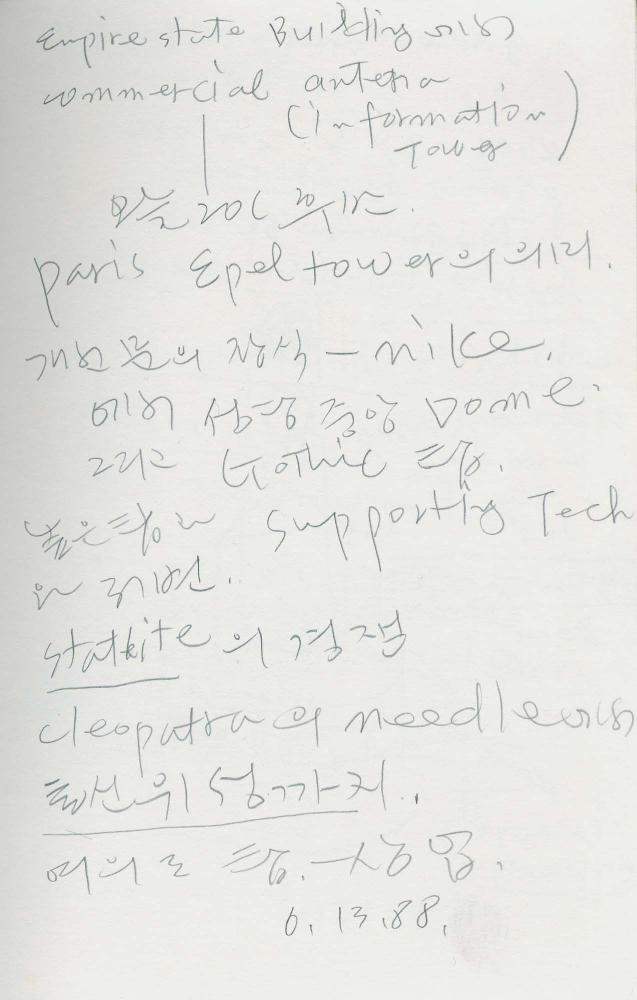 Empire state Building 에서
commercial antena
(information
Tower)
오늘 20C
paris Epel tower의 의미.
개선문의 장식 - nike.
에서 성당 중앙 Dome.
그리고 Gothic 탑.
높은 탑은 supporting Tech
의
의 경쟁
cleopatra의 needle에서
통신위성까지.
여의도 탑.
6. 13. 88.